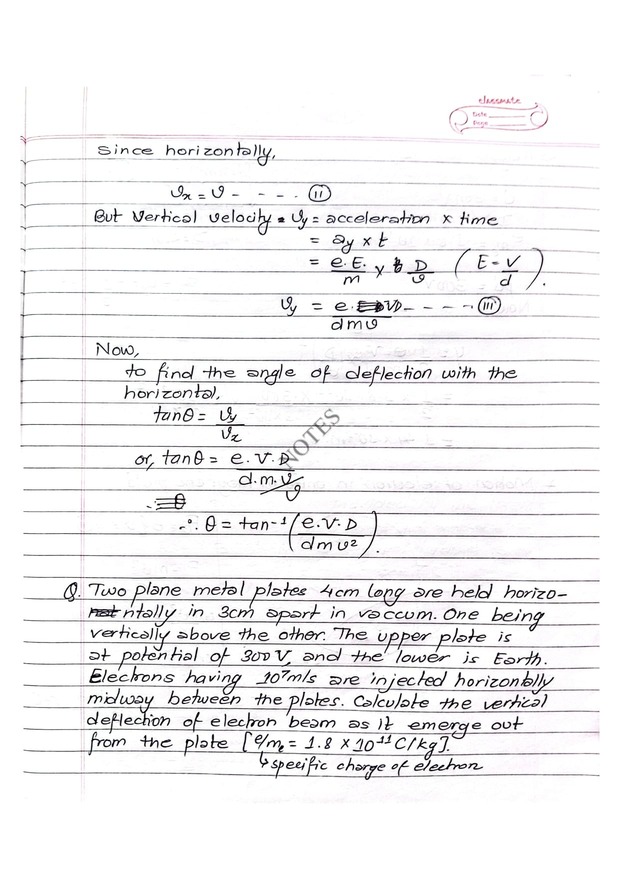 classmate
Date
Page
Since horizontally,
υx = υ - - - - . (II)
But Vertical velocity = υy = acceleration × time
= ay × t
= e.E./m × D/υ (E = V/d).
υy = e.VD/dmυ - - - - - (III)
Now,
to find the angle of deflection with the
horizontal,
tanθ = υy/υx
or, tanθ = e.V.D/d.m.υ/υ
∴ θ = tan-1 (e.V.D/dmυ²).
NOTES
Q. Two plane metal plates 4cm long are held horizo-
ntally in 3cm apart in vaccum. One being
vertically above the other. The upper plate is
at potential of 300V, and the lower is Earth.
Electrons having 10⁷m/s are injected horizontally
midway between the plates. Calculate the vertical
deflection of electron beam as it emerge out
from the plate [e/me = 1.8 × 10¹¹ C/kg].
↳ specific charge of electron